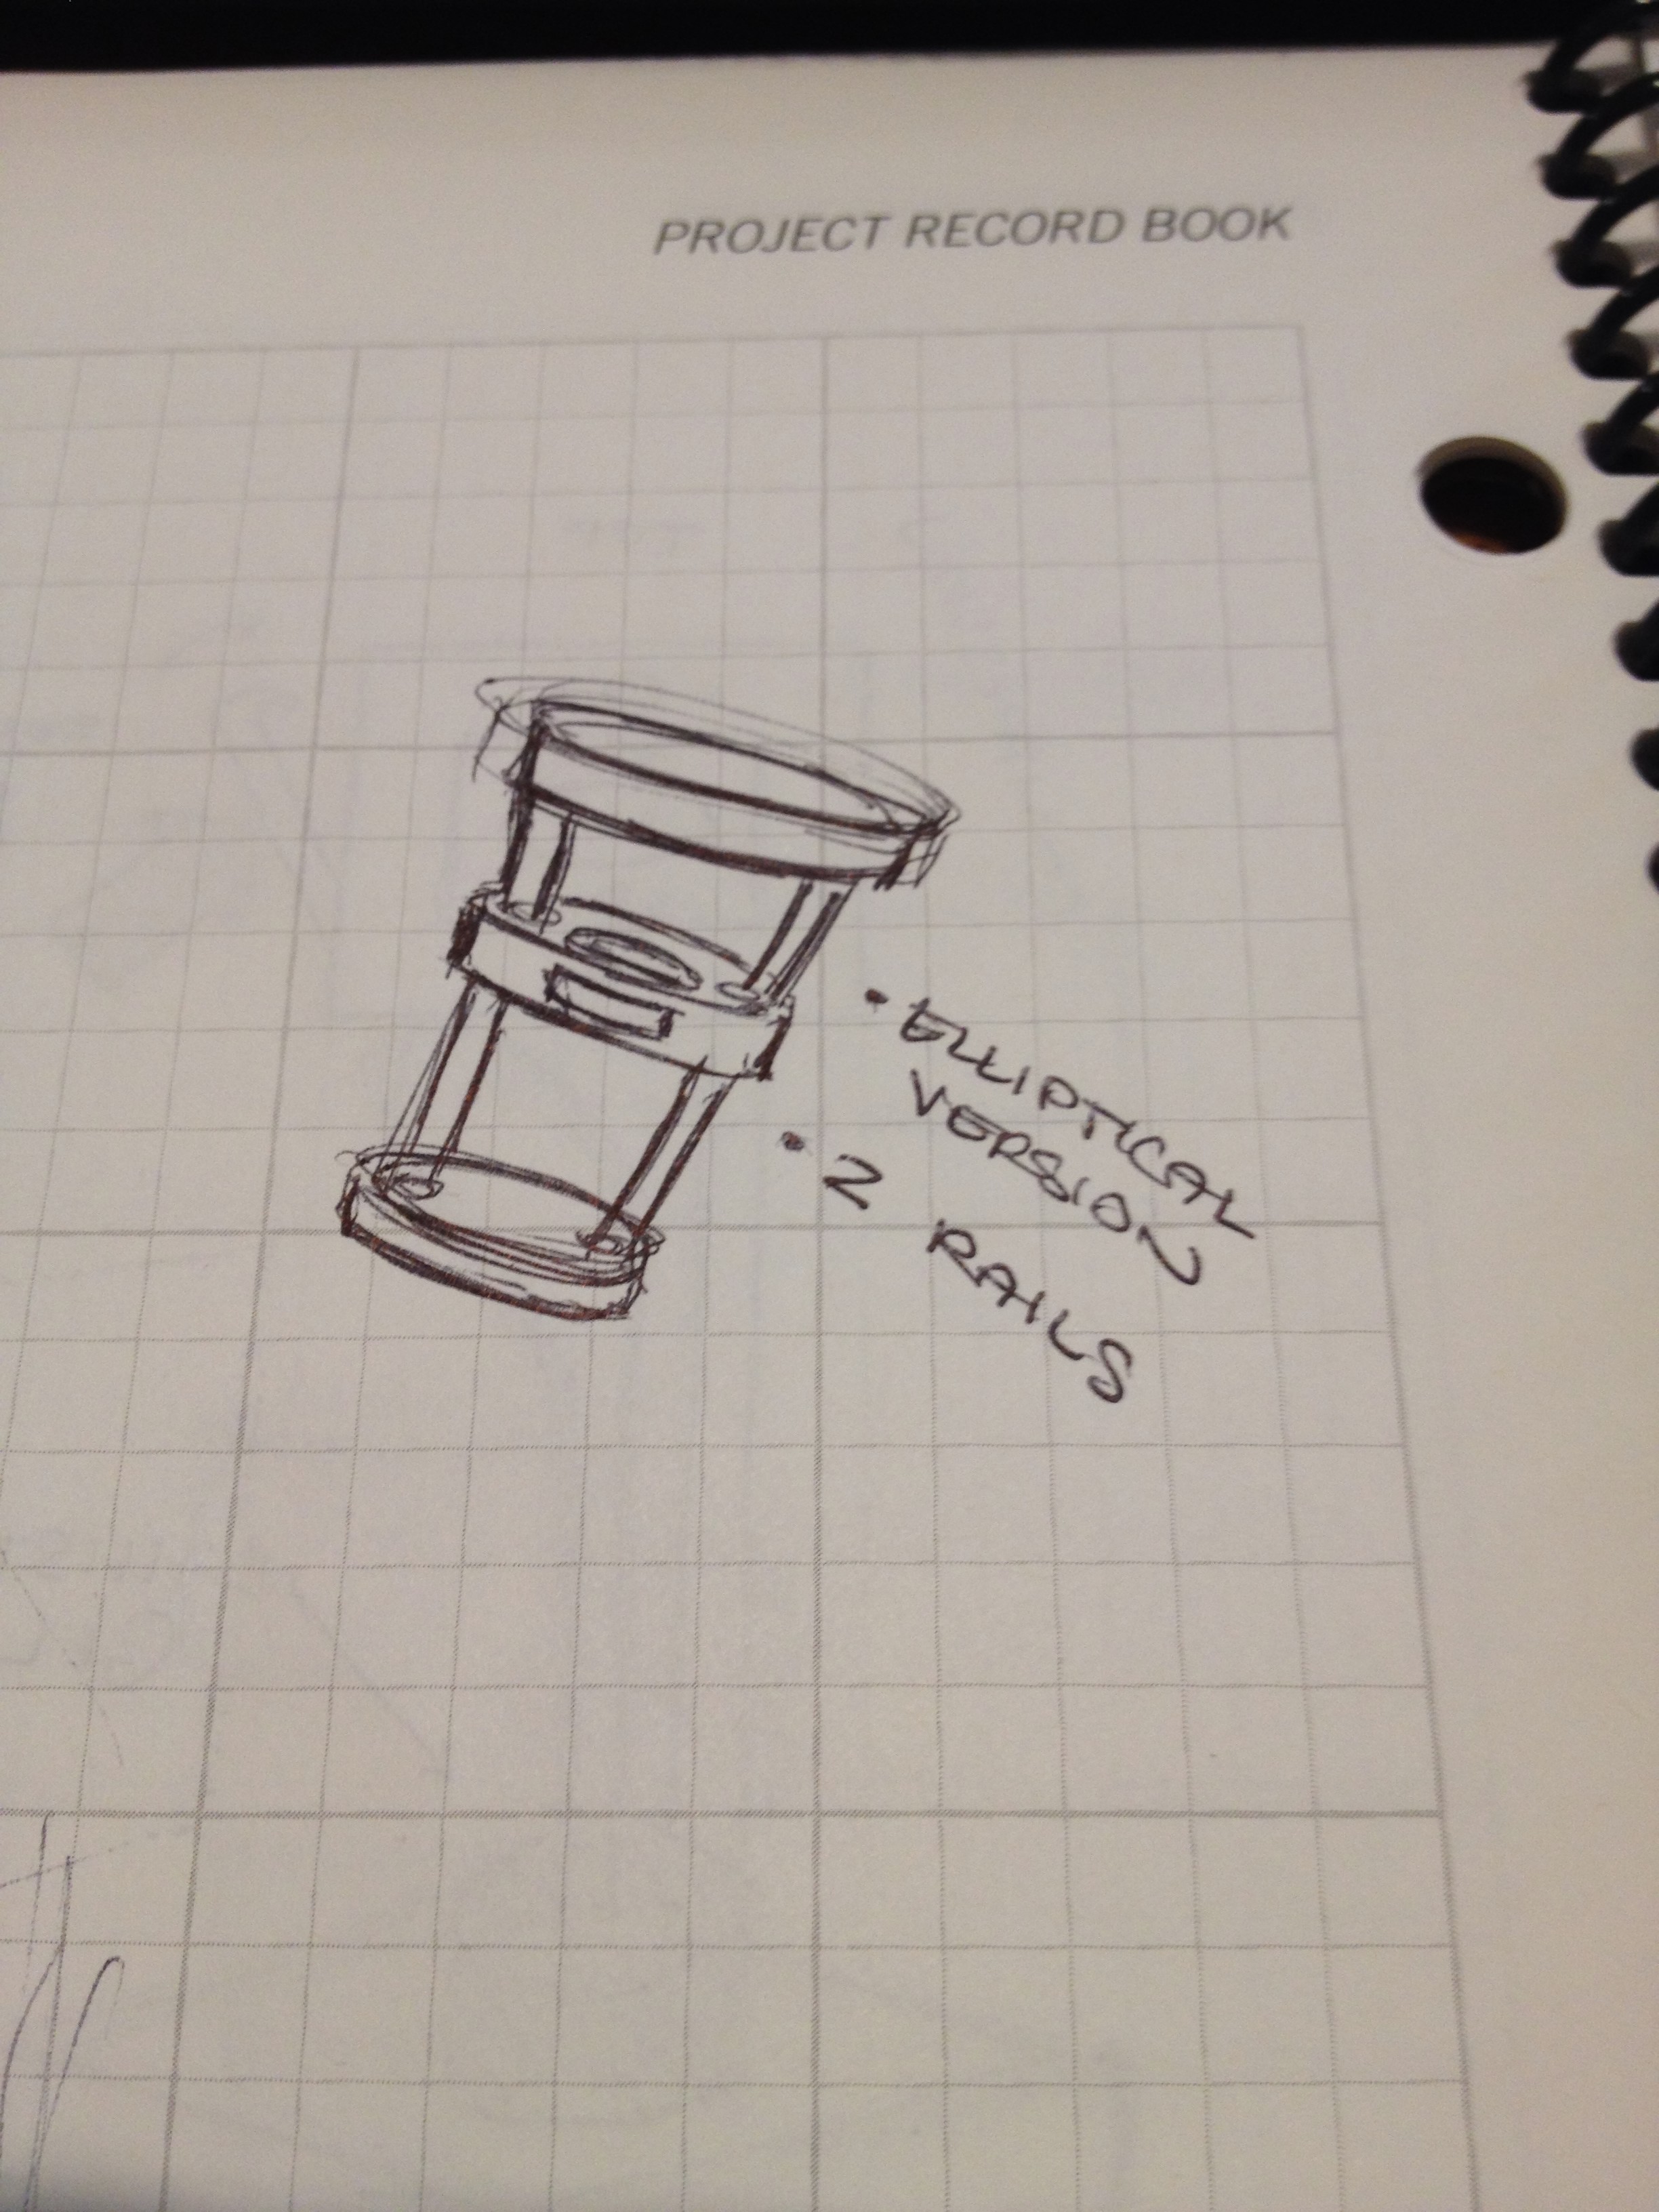 PROJECT RECORD BOOK
• ELLIPTICAL
VERSION
• 2 RAILS